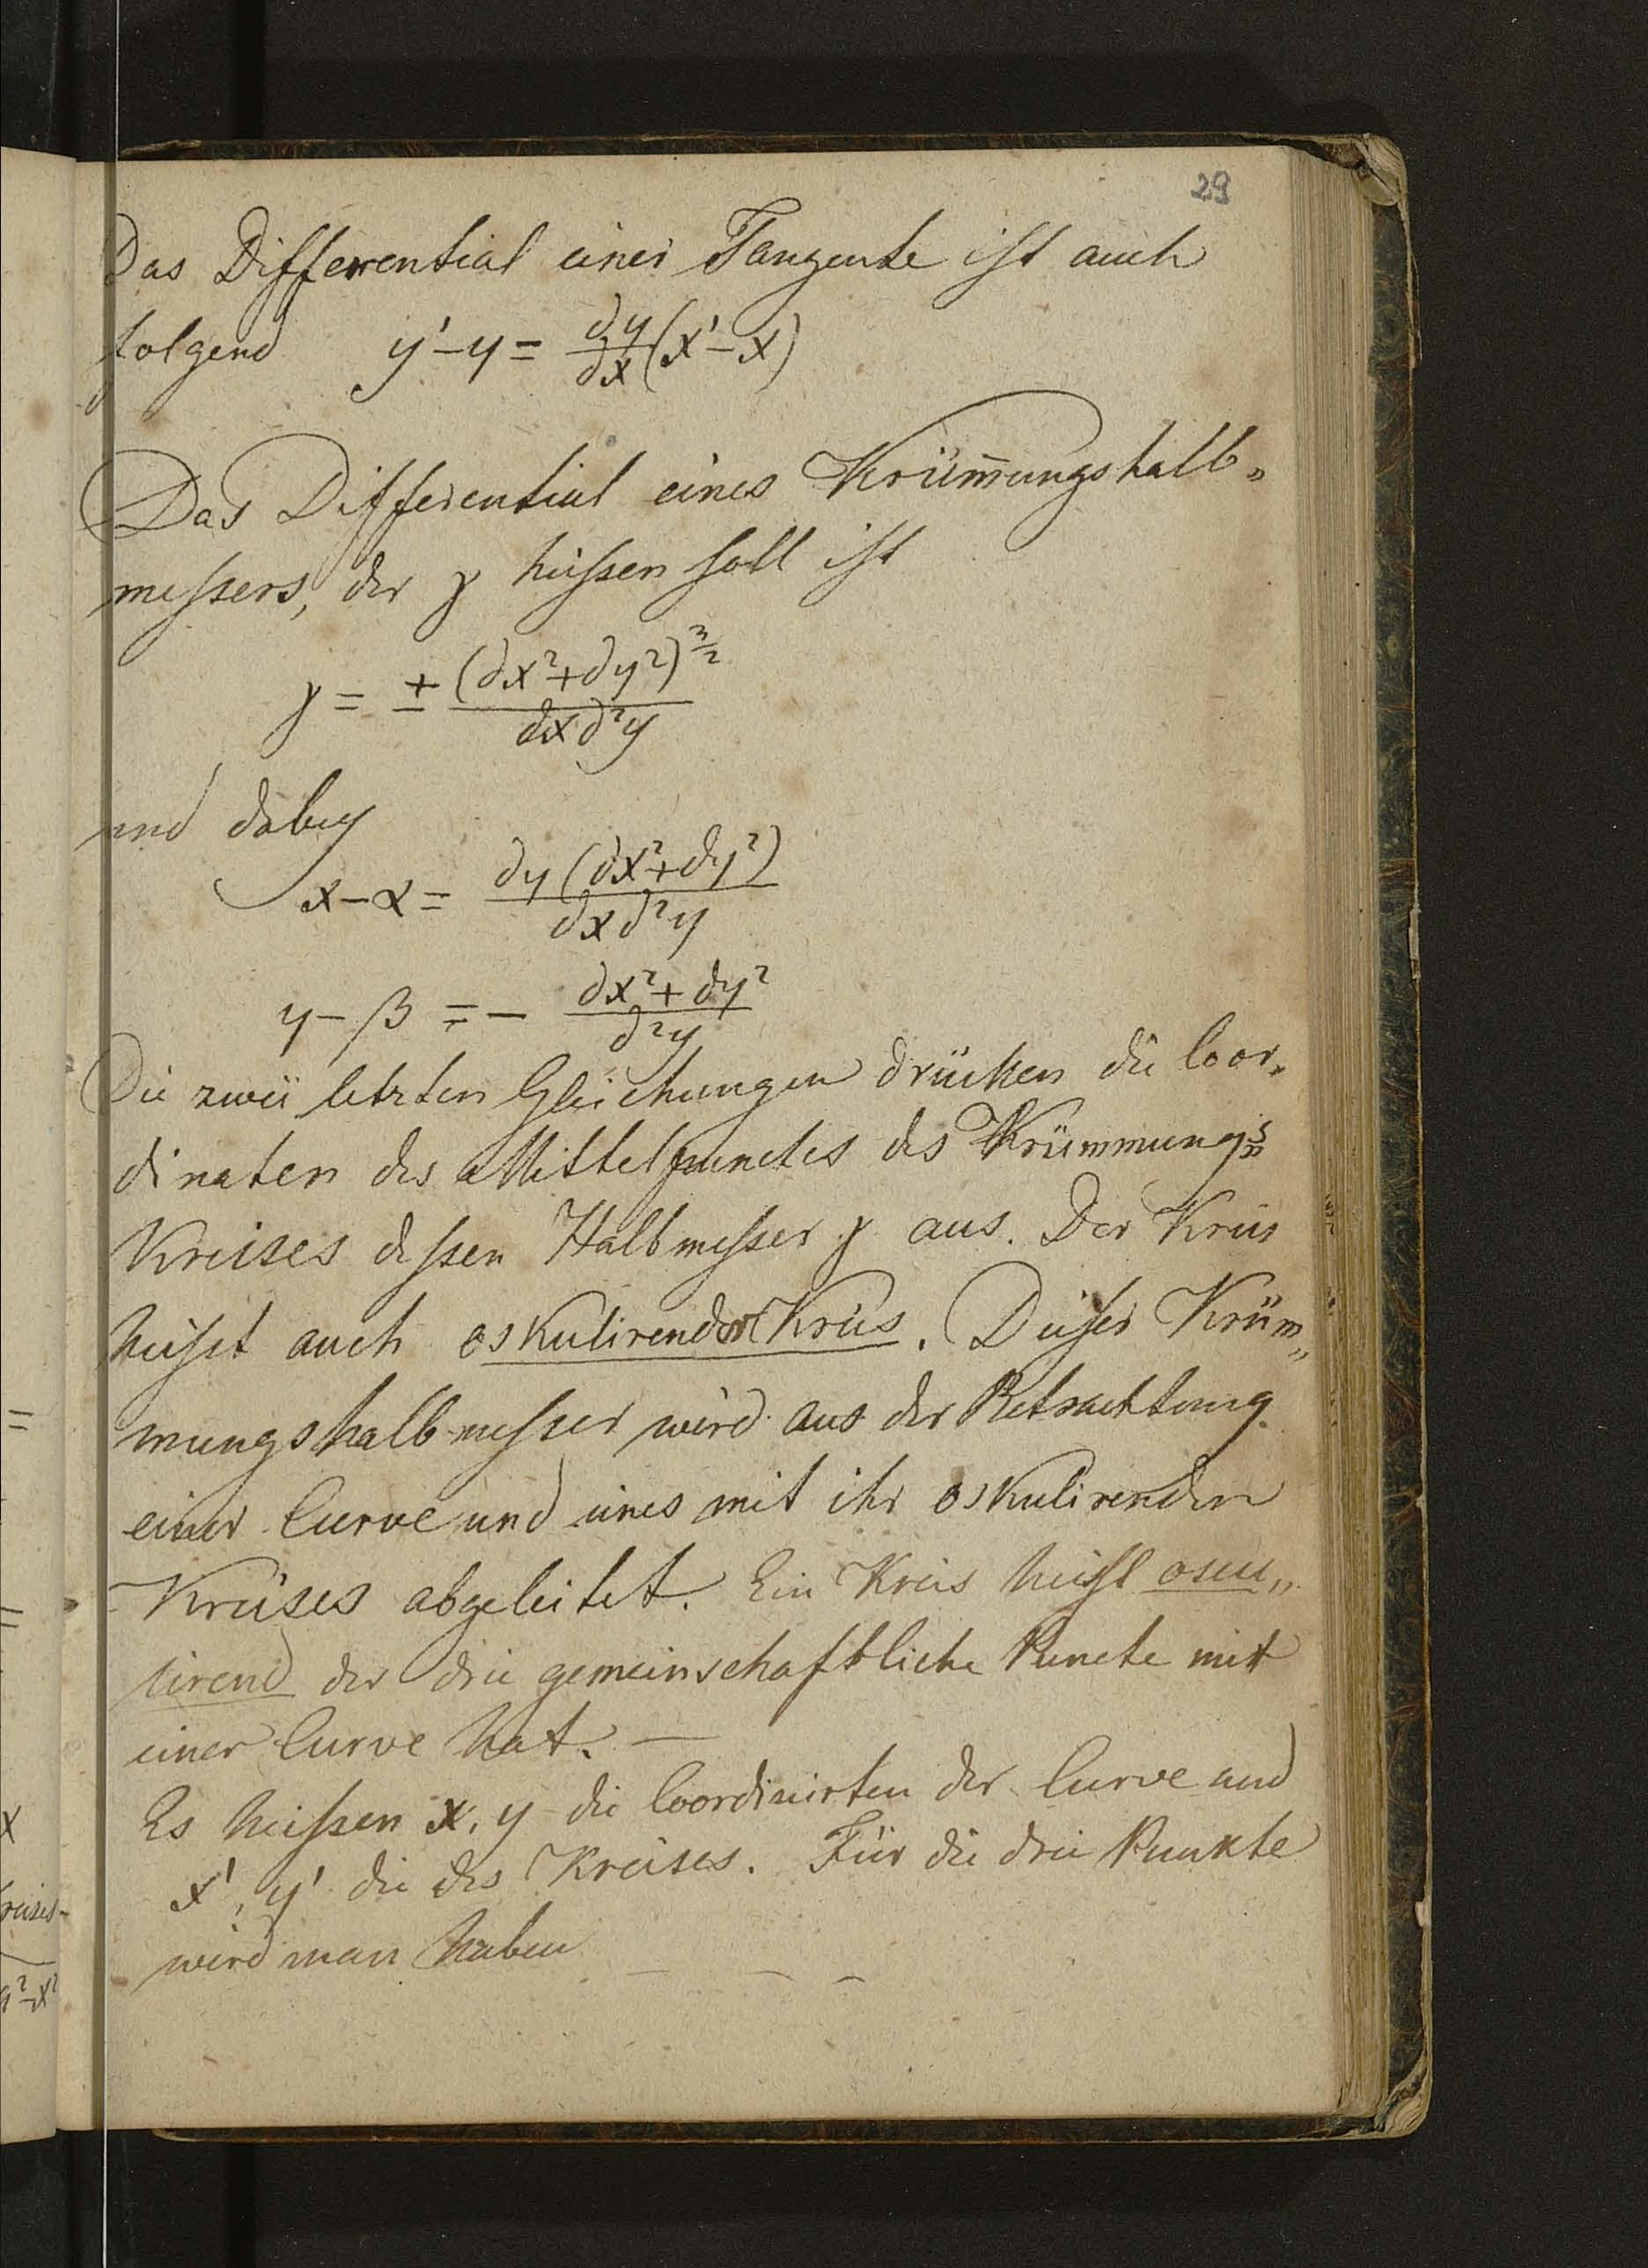 29
Das Differential einer Tangente ist auch
folgend y' – y = ∂y/∂x (x' – x)
Das Differential eines Krüm̄ungshalb„
messers, der γ heissen soll ist
γ = ± (∂x² + ∂y²)^3/2 / ∂x ∂²y
und dabey
x – α = ∂y (∂x² + ∂y²) / ∂x ∂²y
y – β = – ∂x² + ∂y² / ∂²y
Die zwei letzten Gleichungen drücken die Coor„
dinaten des Mittelpunctes des Krümmungs„
Kreises dessen Halbmesser γ aus. Der Kreis
heisst auch oskulirender Kreis. Dieser Krüm„
mungshalbmesser wird aus der Betrachtung
einer Curve und eines mit ihr oskulirenden
Kreises abgeleitet. Ein Kreis heisst oscu„
lirend der drei gemeinschaftliche Puncte mit
einer Curve hat. —
Es heissen x, y die Coordinirten der Curve und
x', y' die des Kreises. Für die drei Punkte
wird man haben — — —
=
=
x
Kreises-
a²–x²